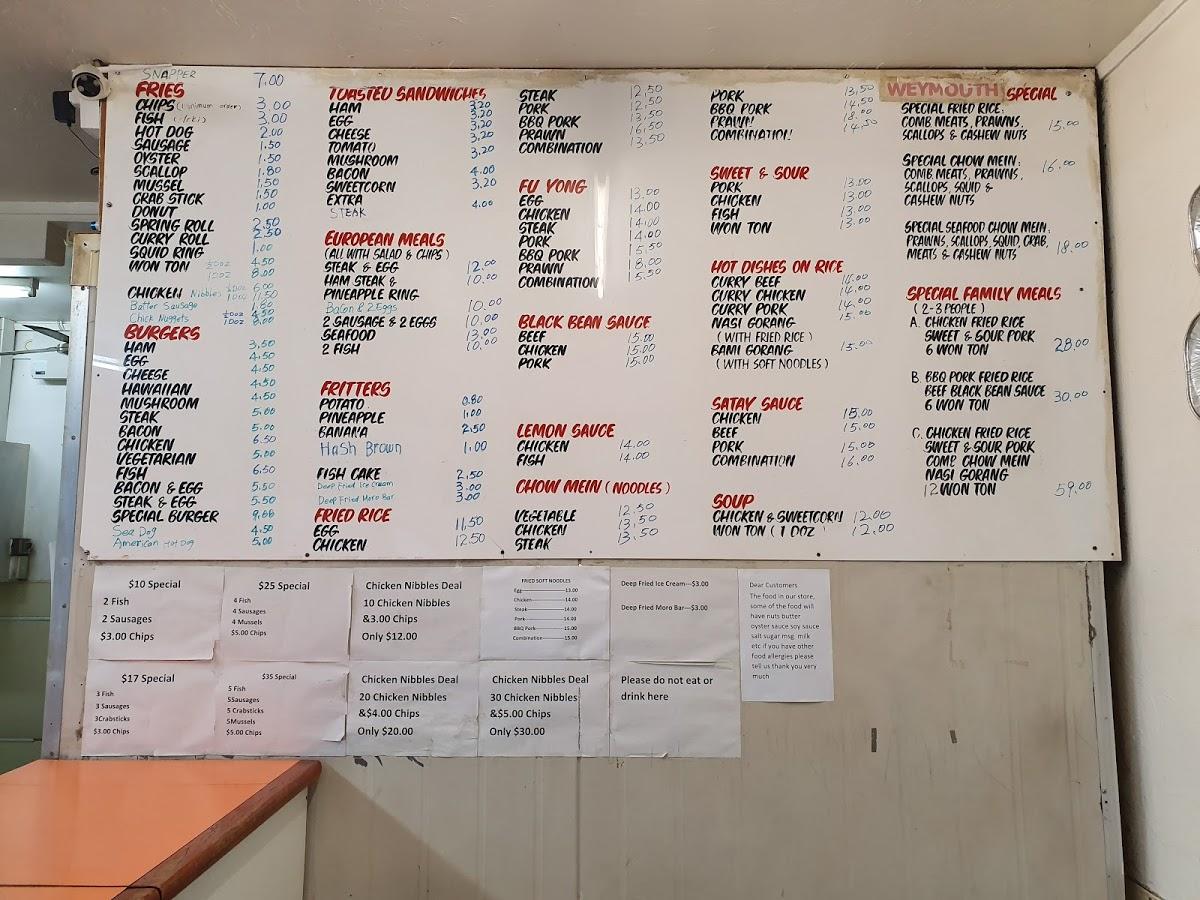 SNAPPER 7.00
FRIES
CHIPS (minimum order) 3.00
FISH 3.00
HOT DOG 2.00
SAUSAGE 1.50
OYSTER 1.50
SCALLOP 1.80
MUSSEL 1.50
CRAB STICK 1.50
DONUT 1.00
SPRING ROLL 2.50
CURRY ROLL 2.50
SQUID RING 1.00
WON TON ½DOZ 4.50
1DOZ 8.00
CHICKEN Nibbles ½DOZ 6.00
1DOZ 11.50
Batter Sausage 1.80
Chick Nuggets ½DOZ 4.50
1DOZ 8.00
BURGERS
HAM 3.50
EGG 4.50
CHEESE 4.50
HAWAIIAN 4.50
MUSHROOM 4.50
STEAK 5.00
BACON 5.00
CHICKEN 6.50
VEGETARIAN 5.00
FISH 6.50
BACON & EGG 5.50
STEAK & EGG 5.50
SPECIAL BURGER
Sea Dog 4.50
American Hot Dog 5.00
TOASTED SANDWICHES
HAM 3.20
EGG 3.20
CHEESE 3.20
TOMATO 3.20
MUSHROOM
BACON 4.00
SWEETCORN 3.20
EXTRA
STEAK 4.00
EUROPEAN MEALS
(ALL WITH SALAD & CHIPS)
STEAK & EGG 12.00
HAM STEAK & 10.00
PINEAPPLE RING
Bacon & 2 Eggs 10.00
2 SAUSAGE & 2 EGGS 10.00
SEAFOOD 13.00
2 FISH 10.00
FRITTERS
POTATO 0.80
PINEAPPLE 1.00
BANANA 2.50
Hash Brown 1.00
FISH CAKE 2.50
Deep Fried Ice Cream 3.00
Deep Fried Moro Bar 3.00
FRIED RICE
EGG 11.50
CHICKEN 12.50
STEAK 12.50
PORK 12.50
BBQ PORK 13.50
PRAWN 16.50
COMBINATION 13.50
FU YONG
EGG 13.00
CHICKEN 14.00
STEAK 14.00
PORK 14.00
BBQ PORK 15.50
PRAWN 18.00
COMBINATION 15.50
BLACK BEAN SAUCE
BEEF 15.00
CHICKEN 15.00
PORK 15.00
LEMON SAUCE
CHICKEN 14.00
FISH 14.00
CHOW MEIN (NOODLES)
VEGETABLE 12.50
CHICKEN 13.50
STEAK 13.50
PORK 13.50
BBQ PORK 14.50
PRAWN 18.00
COMBINATION 14.50
SWEET & SOUR
PORK 13.00
CHICKEN 13.00
FISH 13.00
WON TON 13.00
HOT DISHES ON RICE
CURRY BEEF 14.00
CURRY CHICKEN 14.00
CURRY PORK 14.00
NASI GORANG 15.00
(WITH FRIED RICE)
BAMI GORANG 15.00
(WITH SOFT NOODLES)
SATAY SAUCE
CHICKEN 15.00
BEEF 15.00
PORK 15.00
COMBINATION 16.00
SOUP
CHICKEN & SWEETCORN 12.00
WON TON (1 DOZ) 12.00
WEYMOUTH SPECIAL
SPECIAL FRIED RICE:
COMB MEATS, PRAWNS, 15.00
SCALLOPS & CASHEW NUTS
SPECIAL CHOW MEIN: 16.00
COMB MEATS, PRAWNS,
SCALLOPS, SQUID &
CASHEW NUTS
SPECIAL SEAFOOD CHOW MEIN:
PRAWNS, SCALLOPS, SQUID, CRAB, 18.00
MEATS & CASHEW NUTS
SPECIAL FAMILY MEALS
(2-3 PEOPLE)
A. CHICKEN FRIED RICE
SWEET & SOUR PORK
6 WON TON 28.00
B. BBQ PORK FRIED RICE
BEEF BLACK BEAN SAUCE 30.00
6 WON TON
C. CHICKEN FRIED RICE
SWEET & SOUR PORK
COMB CHOW MEIN
NASI GORANG
12 WON TON 59.00
$10 Special
2 Fish
2 Sausages
$3.00 Chips
$25 Special
4 Fish
4 Sausages
4 Mussels
$5.00 Chips
Chicken Nibbles Deal
10 Chicken Nibbles
&3.00 Chips
Only $12.00
FRIED SOFT NOODLES
Egg 13.00
Chicken 14.00
Steak 14.00
Pork 14.00
BBQ Pork 15.00
Combination 15.00
Deep Fried Ice Cream---$3.00
Deep Fried Moro Bar---$3.00
Dear Customers
The food in our store,
some of the food will
have nuts butter
oyster sauce soy sauce
salt sugar msg milk
etc if you have other
food allergies please
tell us thank you very
much
$17 Special
3 Fish
3 Sausages
3Crabsticks
$3.00 Chips
$35 Special
5 Fish
5Sausages
5 Crabsticks
5Mussels
$5.00 Chips
Chicken Nibbles Deal
20 Chicken Nibbles
&$4.00 Chips
Only $20.00
Chicken Nibbles Deal
30 Chicken Nibbles
&$5.00 Chips
Only $30.00
Please do not eat or
drink here